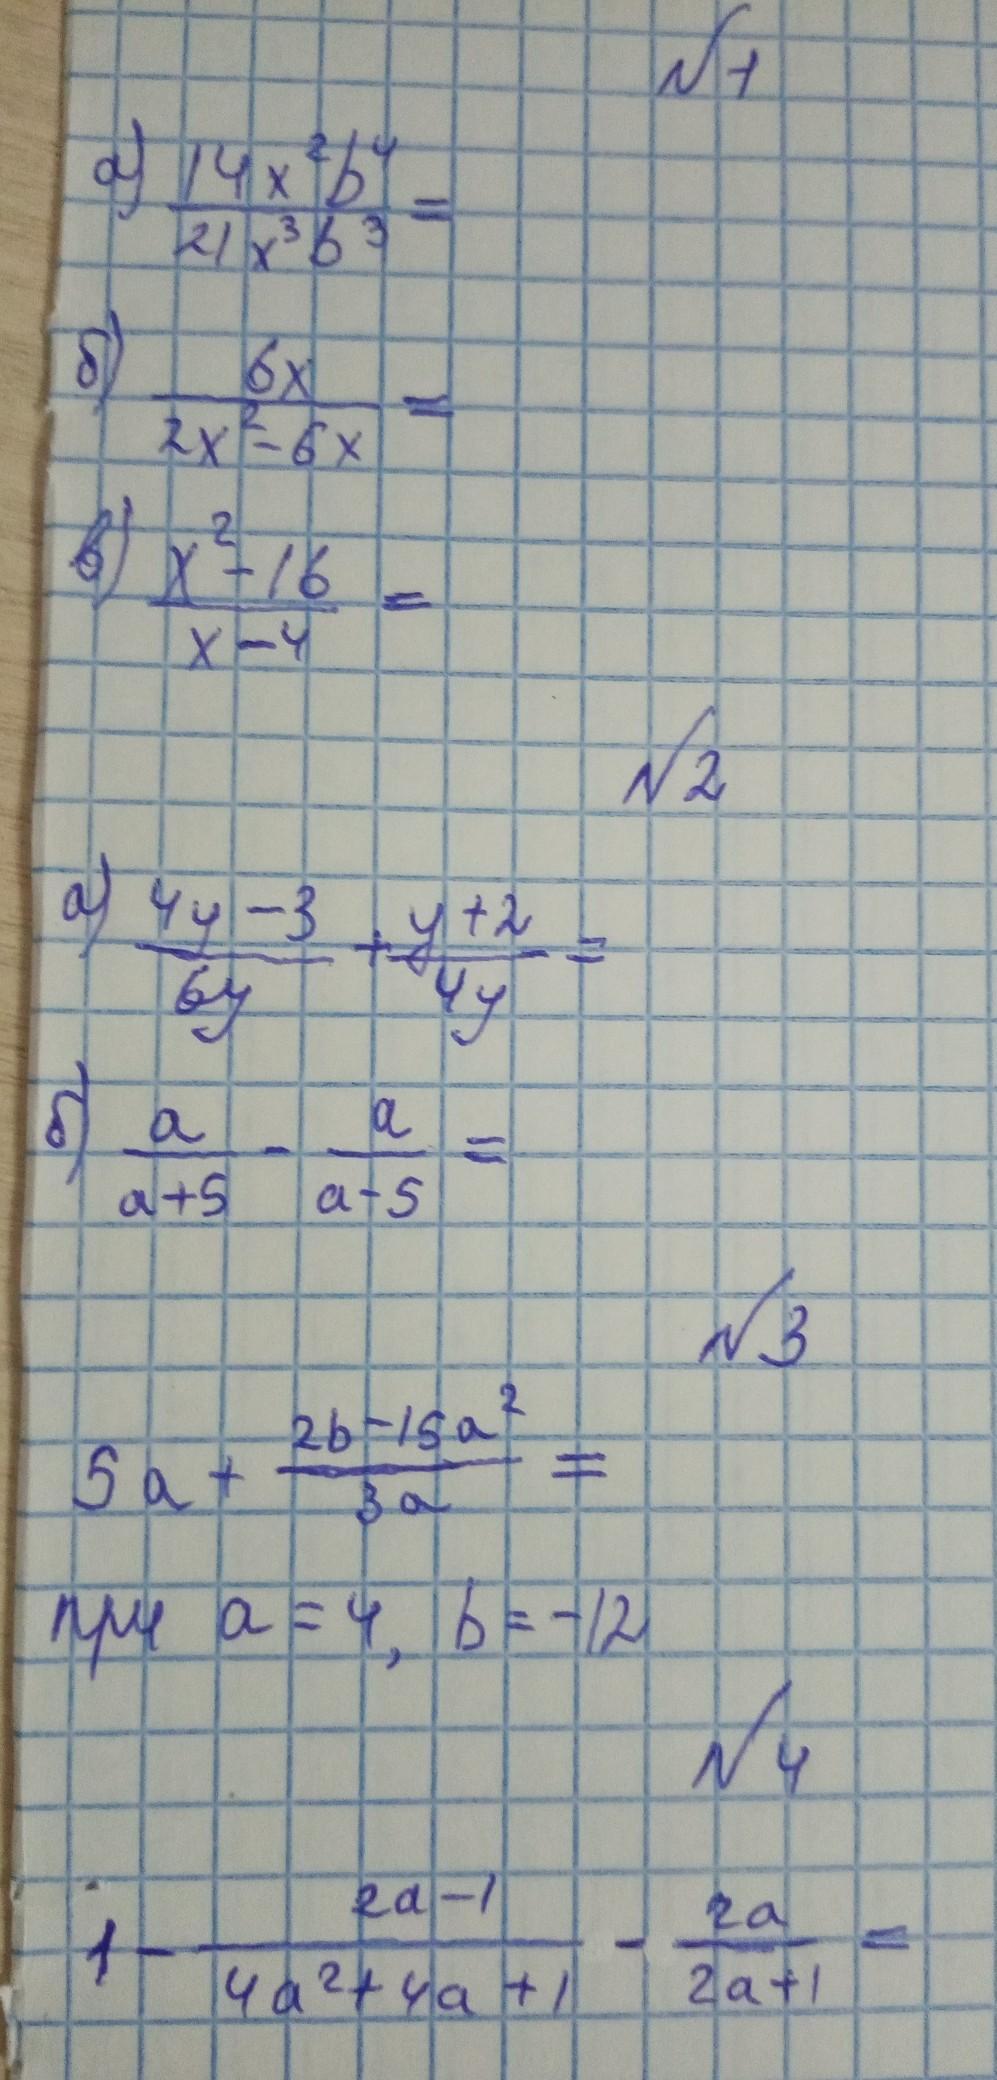 №1
а) 14x²b⁴/21x³b³ =
б) 6x/(2x²-6x) =
в) (x²-16)/(x-4) =
№2
а) (4y-3)/6y + (y+2)/4y =
б) a/(a+5) - a/(a-5) =
№3
5a + (2b-15a²)/3a =
при a=4, b=-12
№4
1 - (2a-1)/(4a²+4a+1) - 2a/(2a+1) =